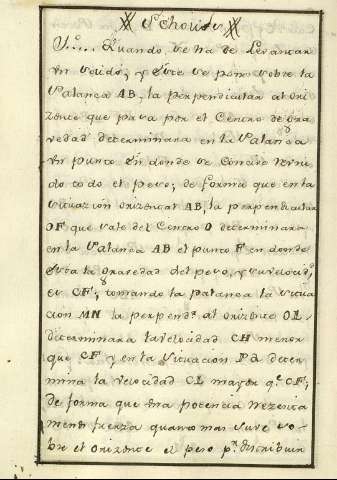 Schouio
Quando se ha de Levantar
Un solido, y este se pone sobre la
Palanca AB, la perpendicular al Ori
zonte que pasa por el Centro de Gra
vedad determinara en la Palanca
Un punto en donde se Concive Reuni
do todo el peso; de forma que en la
situacion orizontal AB, la perpendicular
OF que sale del Centro O determinara
en la Palanca AB el punto F en donde
esta la gravedad del peso, y su velocid.
es CF; tomando la palanca la situa
cion MN la perpend. al orizonte OL
determinara la velocidad CH menor
que CF y en la situacion PQ deter
mina la velocidad CL mayor q.e CF;
de forma que Una potencia Nezecita
menos fuerza quanto mas suve so
bre el Orizonte el peso p.